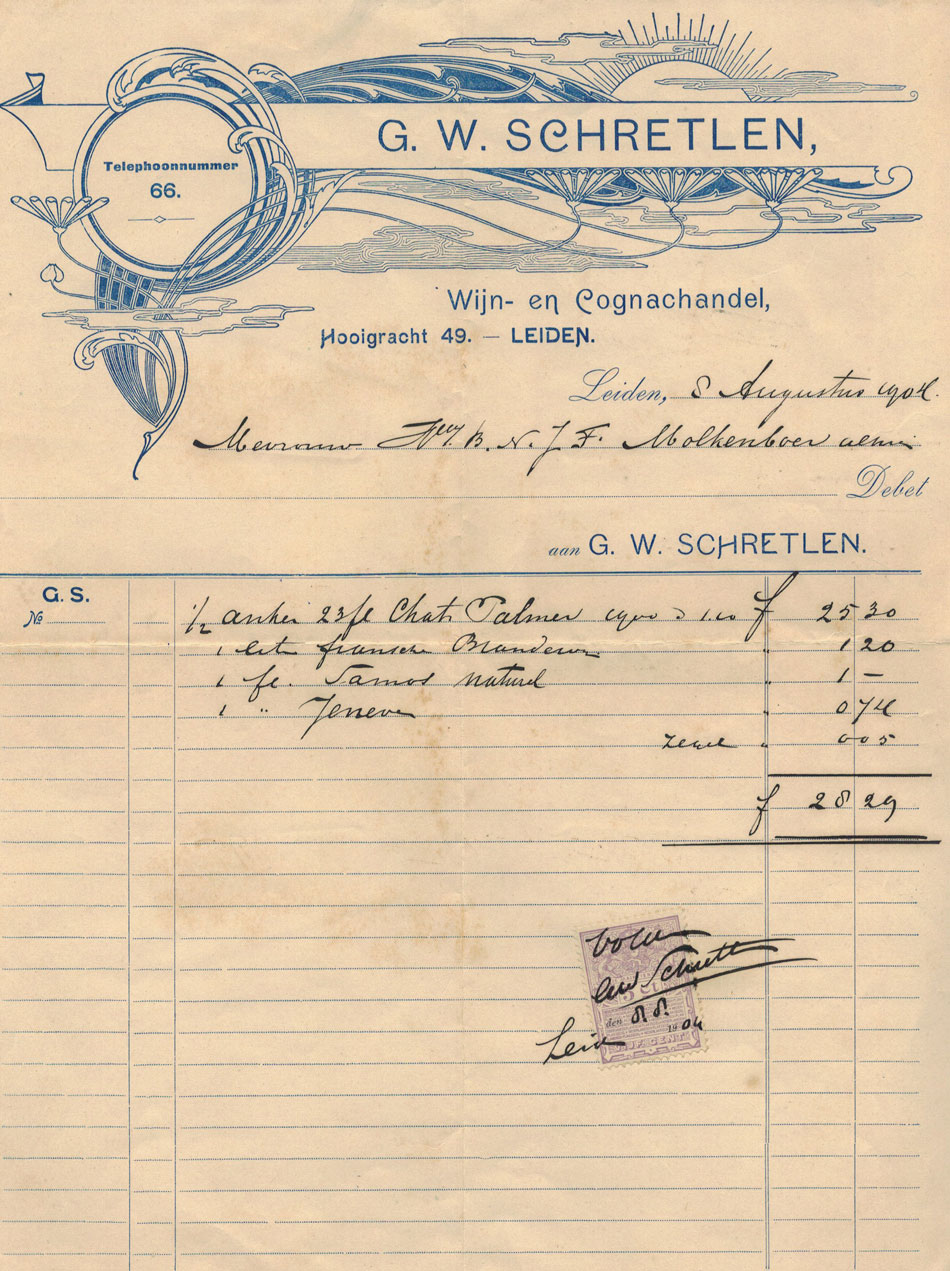 G. W. SCHRETLEN,
Telephoonnummer
66.
Wijn- en Cognachandel,
Hooigracht 49. — LEIDEN.
Leiden, 8 Augustus 1904.
Mevrouw B. N. J. F. Molkenboer alhier
Debet
aan G. W. SCHRETLEN.
G. S.
No
1/2 anker 23 fl Chat. Palmer 1900 à 1.10 f 25 30
1 lit. fransche Brandewijn " 1 20
1 fl. Samos naturel " 1 —
1 " Jenever " 0 74
zegel " 0 05
f 28 29
Voldaan
GW Schretlen
5 CT
den 8.8. 1904
Leiden
VIJF CENT